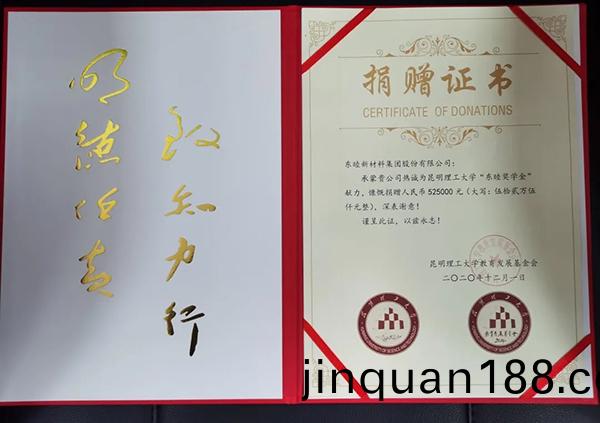 明德任责
致知力行
捐赠证书
CERTIFICATE OF DONATIONS
东睦新材料集团股份有限公司：
承蒙贵公司热诚为昆明理工大学“东睦奖学金”
献力，慷慨捐赠人民币 525000 元（大写：伍拾贰万伍
仟元整），深表谢意！
谨呈此证，以兹永志！
昆明理工大学教育发展基金会
二〇二〇年十二月一日
昆明理工大学
jinquan188.c